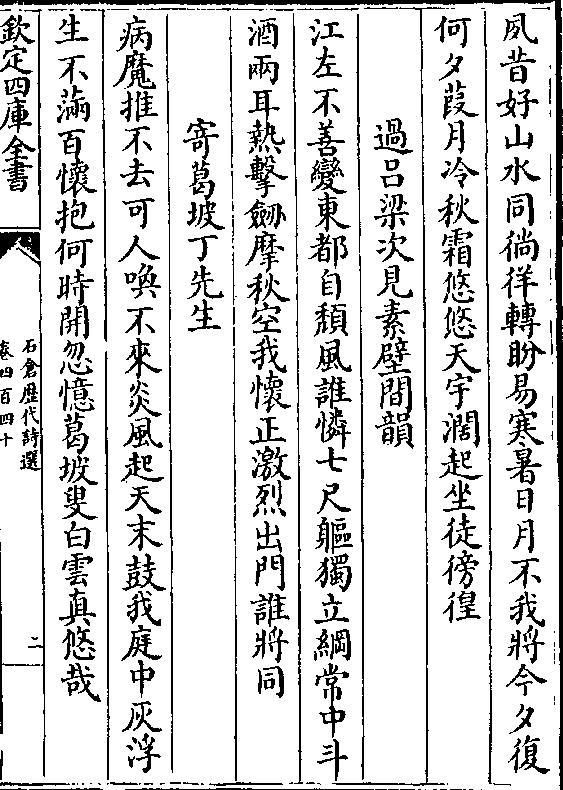 夙昔好山水同徜徉轉盻易寒暑日月不我將今夕復
何夕葭月冷秋霜悠悠天宇濶起坐徒徬徨
過吕梁次見素壁間韻
江左不善變東都自頽風誰憐七尺軀獨立綱常中斗
酒兩耳熱擊劒摩秋空我懷正激烈出門誰將同
寄葛坡丁先生
病魔推不去可人喚不來炎風起天末鼓我庭中灰浮
生不滿百懷抱何時開忽憶葛坡叟白雲真悠哉
欽定四庫全書
石倉歴代詩選
卷四百四十
二